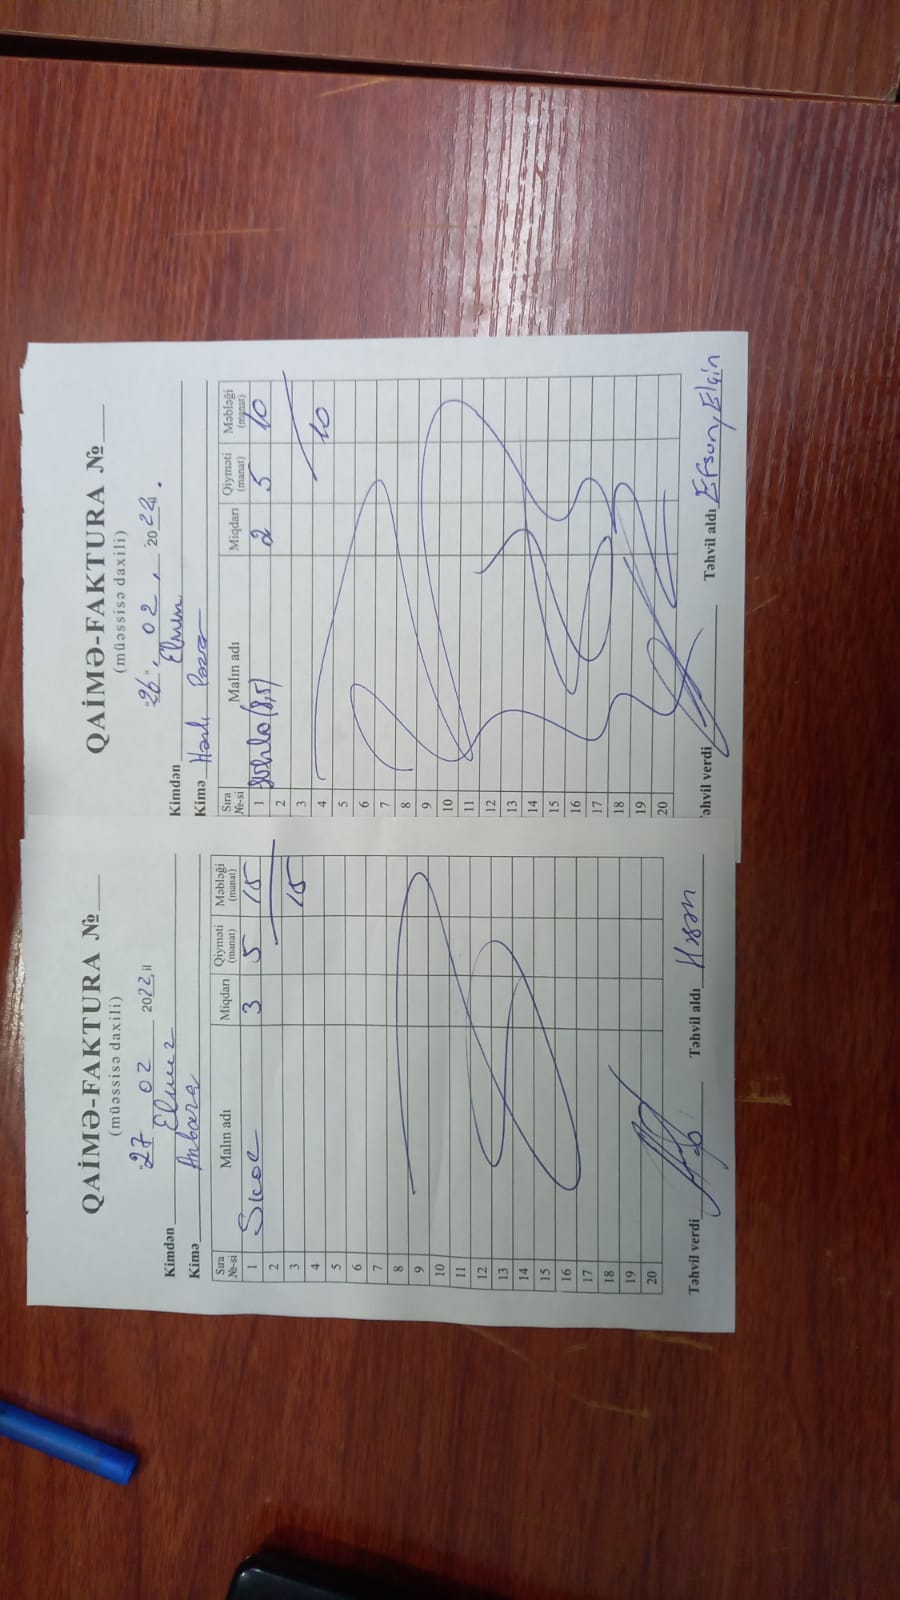 QAİMƏ-FAKTURA №
(müəssisə daxili)
"27 02 2022 il
Kimdən
Kimə Anbara
Sıra №-si Malın adı Miqdarı Qiyməti (manat) Məbləği (manat)
1 3 5 15
2
3 15
4
5
6
7
8
9
10
11
12
13
14
15
16
17
18
19
20
Təhvil verdi Təhvil aldı Həsən
QAİMƏ-FAKTURA №
(müəssisə daxili)
"26", 02, 2022 il.
Kimdən
Kimə
Sıra №-si Malın adı Miqdarı Qiyməti (manat) Məbləği (manat)
1 2 5 10
2
3
4 10
5
6
7
8
9
10
11
12
13
14
15
16
17
18
19
20
Təhvil verdi Təhvil aldı Efsun, Elçin